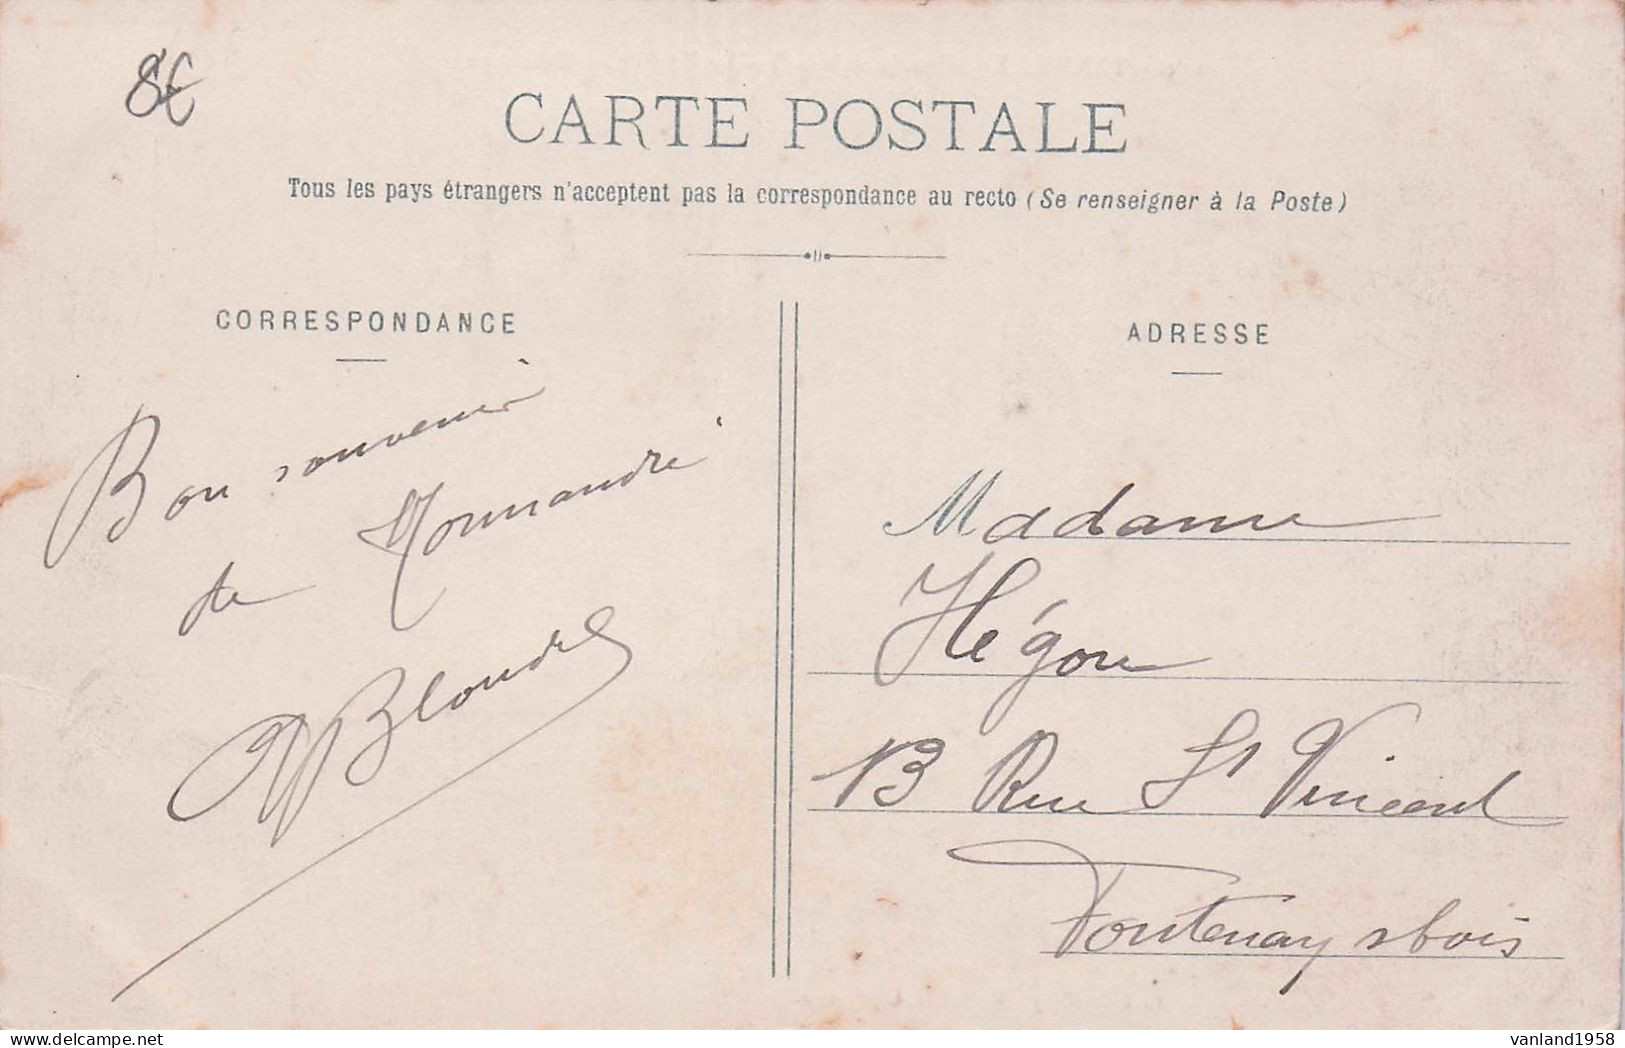 8€
CARTE POSTALE
Tous les pays étrangers n'acceptent pas la correspondance au recto (Se renseigner à la Poste)
CORRESPONDANCE
Bon souvenir
de Normandie
Blondel
ADRESSE
Madame
Hégou
13 Rue St Vincent
Fontenay s bois
vanland1958